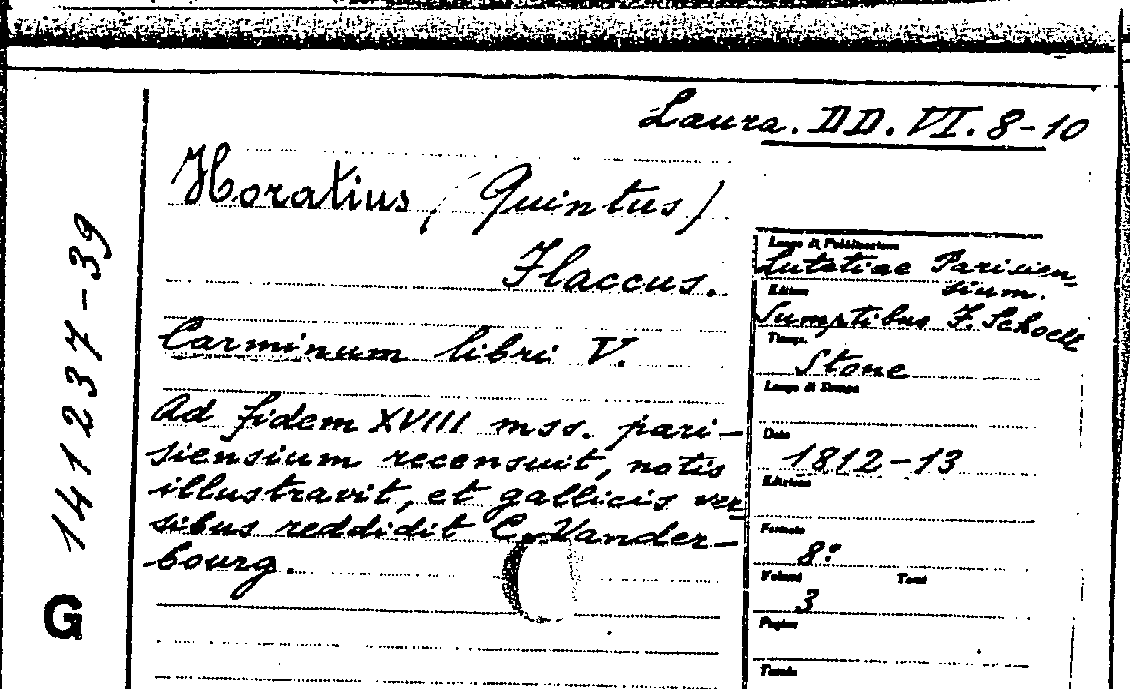 Laura. DD. VI. 8-10
Horatius (Quintus)
Flaccus.
Carminum libri V.
Ad fidem XVIII mss. pari-
siensium recensuit, notis
illustravit, et gallicis ver
sibus reddidit C. Vander-
bourg.
G 141237-39
Luogo di Pubblicazione
Lutetiae Parisien
sium.
Editore
Sumptibus F. Schoell
Tipogr.
Stone
Luogo di Stampa
Data
1812-13
Edizione
Formato
8º
Volumi Tomi
3
Pagine
Tavole